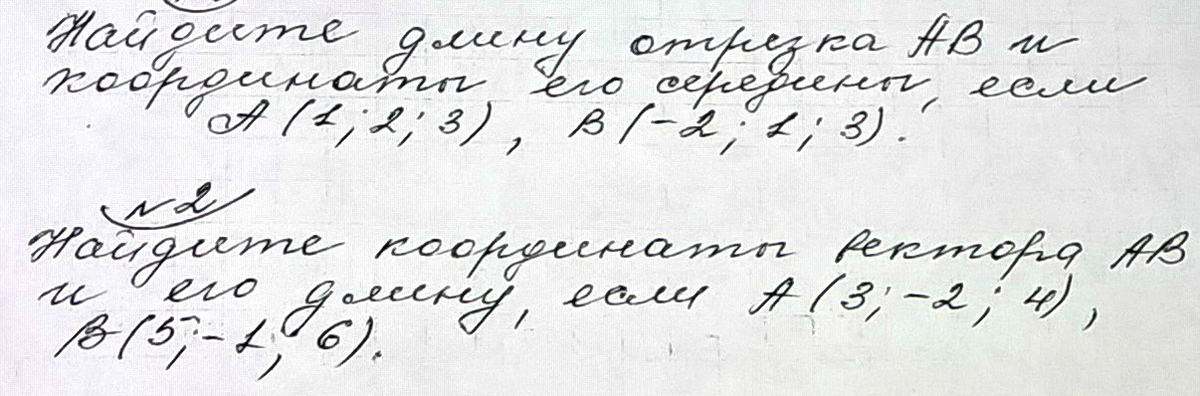 Найдите длину отрезка АВ и
координаты его середины, если
А (1; 2; 3), В (-2; 1; 3).
№2
Найдите координаты вектора АВ
и его длину, если А (3; -2; 4),
В (5; -1; 6).